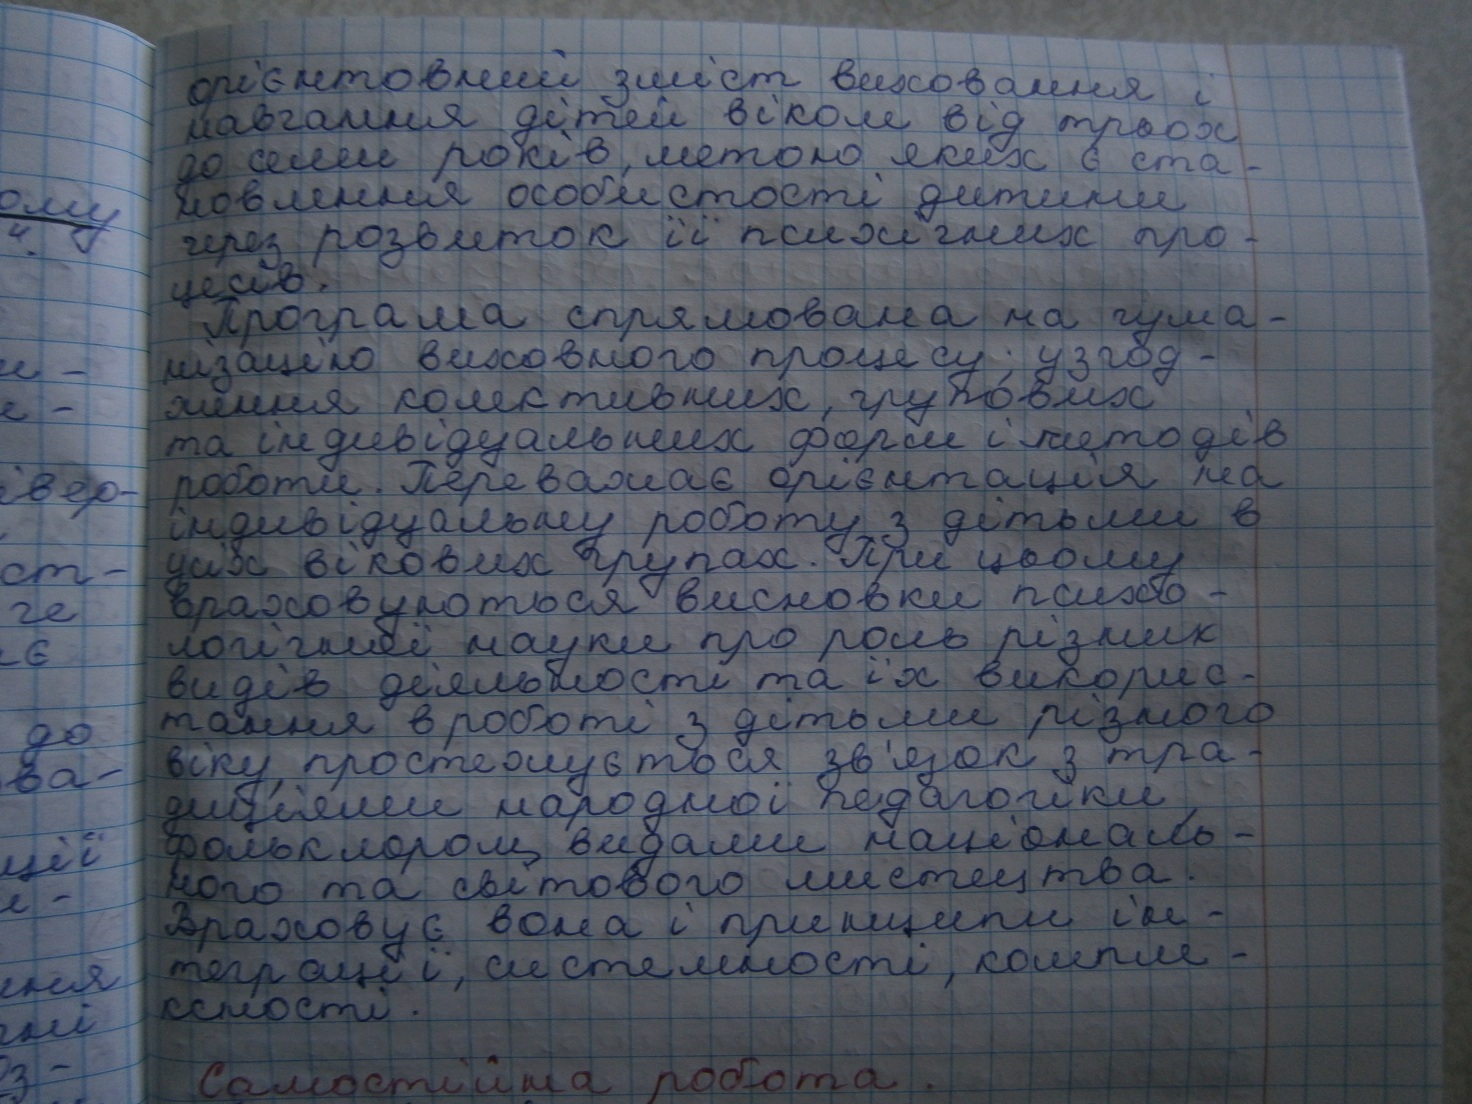 орієнтовний зміст виховання і
навчання дітей віком від трьох
до семи років, метою яких є ста-
новлення особистості дитини
через розвиток її психічних про-
цесів.
Програма спрямована на гума-
нізацію виховного процесу, узгод-
ження колективних, групових
та індивідуальних форм і методів
роботи. Переважає орієнтація на
індивідуальну роботу з дітьми в
усіх вікових групах. При цьому
враховуються висновки психо-
логічної науки про роль різних
видів діяльності та їх викорис-
тання в роботі з дітьми різного
віку, простежується зв'язок з тра-
диціями народної педагогіки,
фольклором, видами національ-
ного та світового мистецтва.
Враховує вона і принципи ін-
теграції, системності, компле-
ксності.
Самостійна робота.
ому
и-
е-
івер-
ст-
че
є
до
ва-
ції
и-
ння
чні
оз-